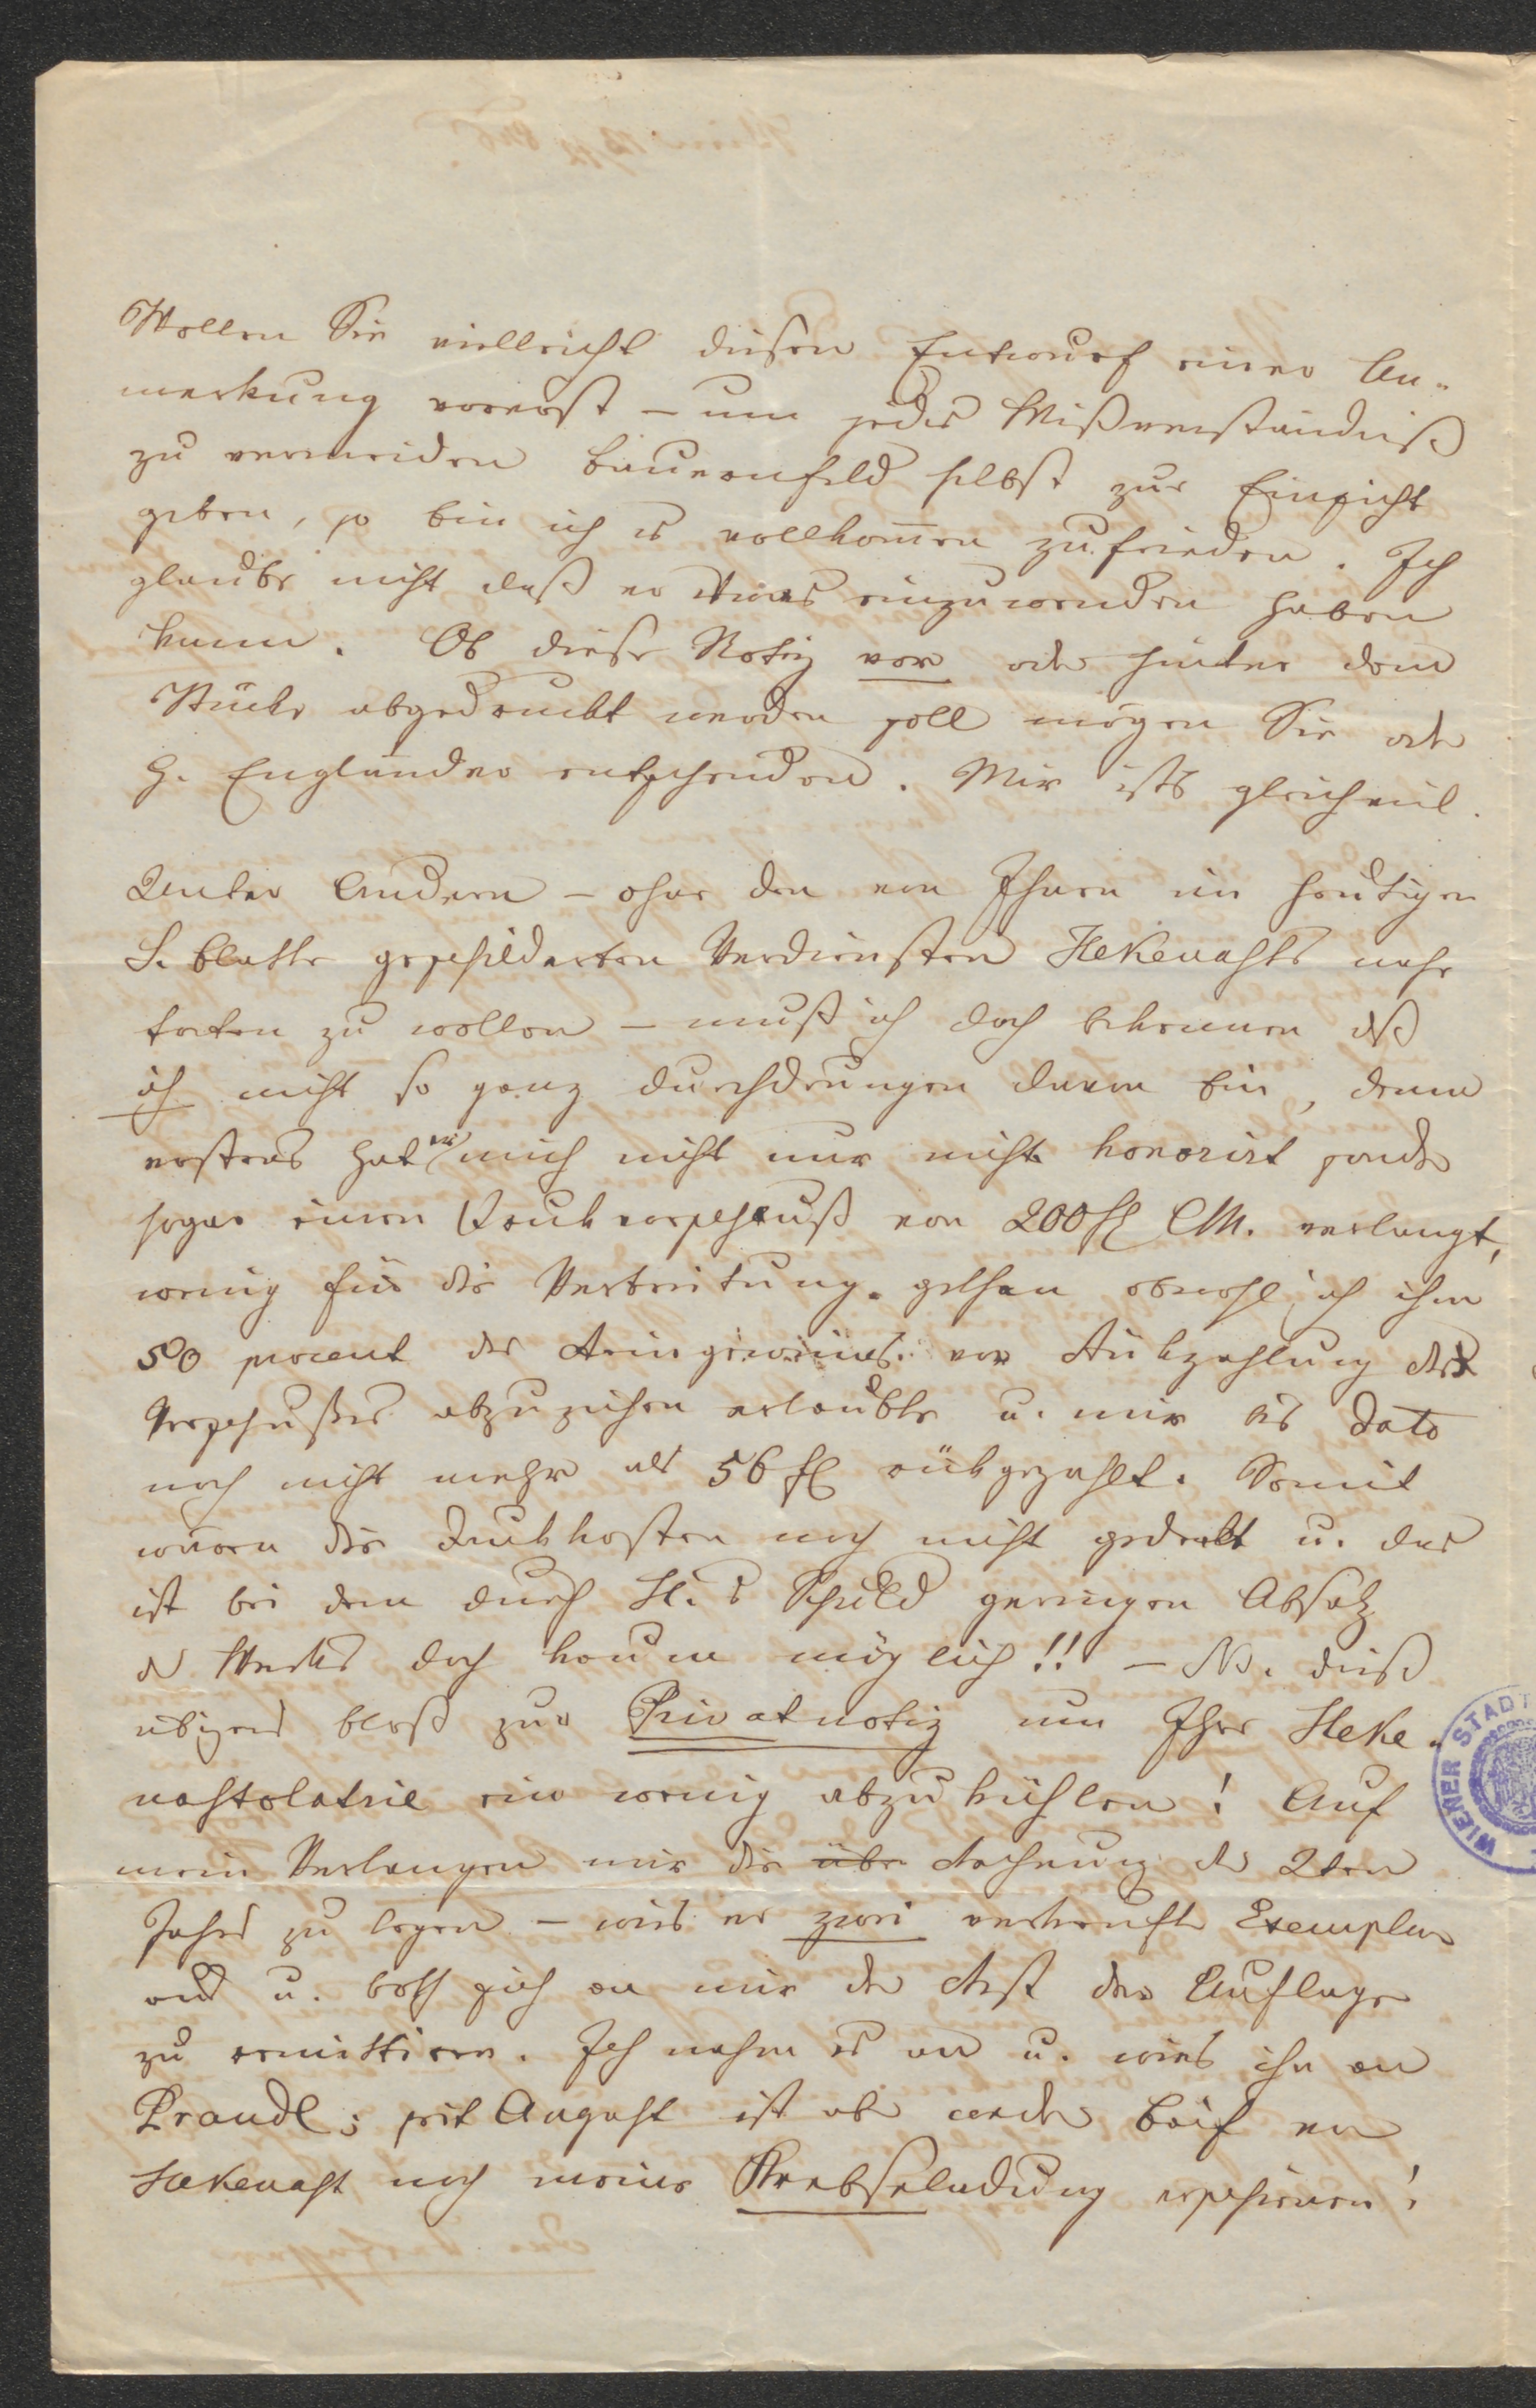 Wollen Sie vielleicht diesen Entwurf einer An-
merkung vorerst – um jedes Mißverständniß
zu vermeiden Bauernfeld selbst zur Einsicht
geben, so bin ich es vollkom̄en zufrieden. Ich
glaube nicht daß er etwas einzuwenden haben
kann. Ob diese Notiz vor oder hinter dem
Stücke abgedruckt werden soll mögen Sie oder
H. Engländer entscheiden. Mir ists gleichviel.
Unter Andern – ohne den von Ihnen im heutigen
S. blatte geschilderten Verdiensten Hekenasts nahe
treten zu wollen – muß ich doch bekennen dß
ich nicht so ganz durchdrungen davon bin, denn
erstens hat er mich nicht nur nicht honorirt sonder
sogar einen Druckvorschuß von 200 fl CM. verlangt,
wenig für die Verbreitung gethan obwohl ich ihm
50 procent des Reingewinnes vor Rückzahlung des
Vorschußes abzuziehen erlaubte u. mir bis dato
noch nicht mehr als 56 fl rückgezahlt. Somit
wären die Druckkosten noch nicht gedeckt u. das
ist bei dem durch H.s Schuld geringen Absatz
d Werkes doch kaum möglich!! – NB. dieß
übigens bloß zur Privatnotiz um Ihre Heke-
nastolatrie ein wenig abzukühlen! Auf
mein Verlangen mir die über Rechnung des 2ten
Jahres zu legen – wies er zwei verkaufte Exemplare
aus u. both sich an mir den Rest der Auflage
zu remittiren. Ich nahm es an u. wies ihn an
Prandl; seit August ist aber weder Brief von
Hekenast noch meine Krebseladung erschienen!
WIENER STADT